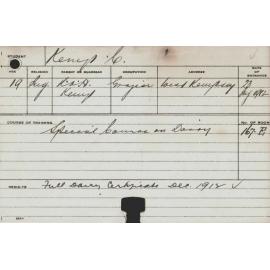 STUDENT
Kemp C.
AGE RELIGION PARENT OR GUARDIAN OCCUPATION ADDRESS DATE OF ENTRANCE
19 R & H. Kemp Grazier West Kempsey 1912
COURSE OF TRAINING
No. OF ROOM
Special Course in Dairy 167
RESULTS
Full Dairy Certificate Dec. 1912 ✓